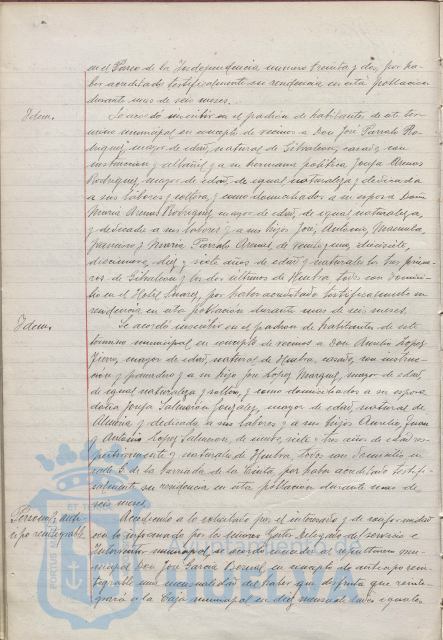 en el Paseo de la Independencia número treinta y dos, por ha-
ber acreditado testificalmente su residencia en esta población
durante mas de seis meses.
Idem.
Se acordó inscribir en el padrón de habitantes de este tér-
mino municipal en concepto de vecinos a Don José Parralo Ro-
driguez, mayor de edad, natural de Gibraleon, casado, con
instrucción y albañil y a su hermana política Josefa
Rodriguez, mayor de edad, de igual naturaleza y dedicada
a sus labores y soltera, y como domiciliados a su esposa Doña
María Rodriguez, mayor de edad, de igual naturaleza,
y dedicada a sus labores y a sus hijos José, Antonio, Manuela,
Francisco y María Parralo de veinte y uno, diecisiete,
diez y siete años de edad y naturales los tres prime-
ros de Gibraleon y los dos últimos de Huelva todos con domici-
lio en el Hotel Suarez, por haber acreditado testificalmente su
residencia en esta población durante mas de seis meses.
Idem.
Se acordó inscribir en el padrón de habitantes de este
término municipal en concepto de vecinos a Don Aurelio López
mayor de edad, natural de Huelva, casado, con instruc-
ción y panadero y a su hijo José López Marquez, mayor de edad
de igual naturaleza y soltero, y como domiciliados a su esposa
doña Josefa Salmerón González, mayor de edad, natural de
Almería y dedicada a sus labores y a sus hijos Aurelio, Juan
y Antonio López Salmerón, de nueve, siete y tres años de edad res-
pectivamente y naturales de Huelva todos con domicilio en
calle de la Barriada de la Cinta, por haber acreditado testifi-
calmente su residencia en esta población durante mas de
seis meses.
Personal; anti-
cipo reintegrable.
Accediendo a lo solicitado por el interesado y de conformidad
con lo informado por los señores Gestor Delegado del servicio e
Interventor municipal se acordó conceder al
municipal Don José García Bernal en concepto de anticipo rein-
tegrable una mensualidad del haber que disfruta que reinte-
grará a la Caja municipal en diez mensualidades iguales